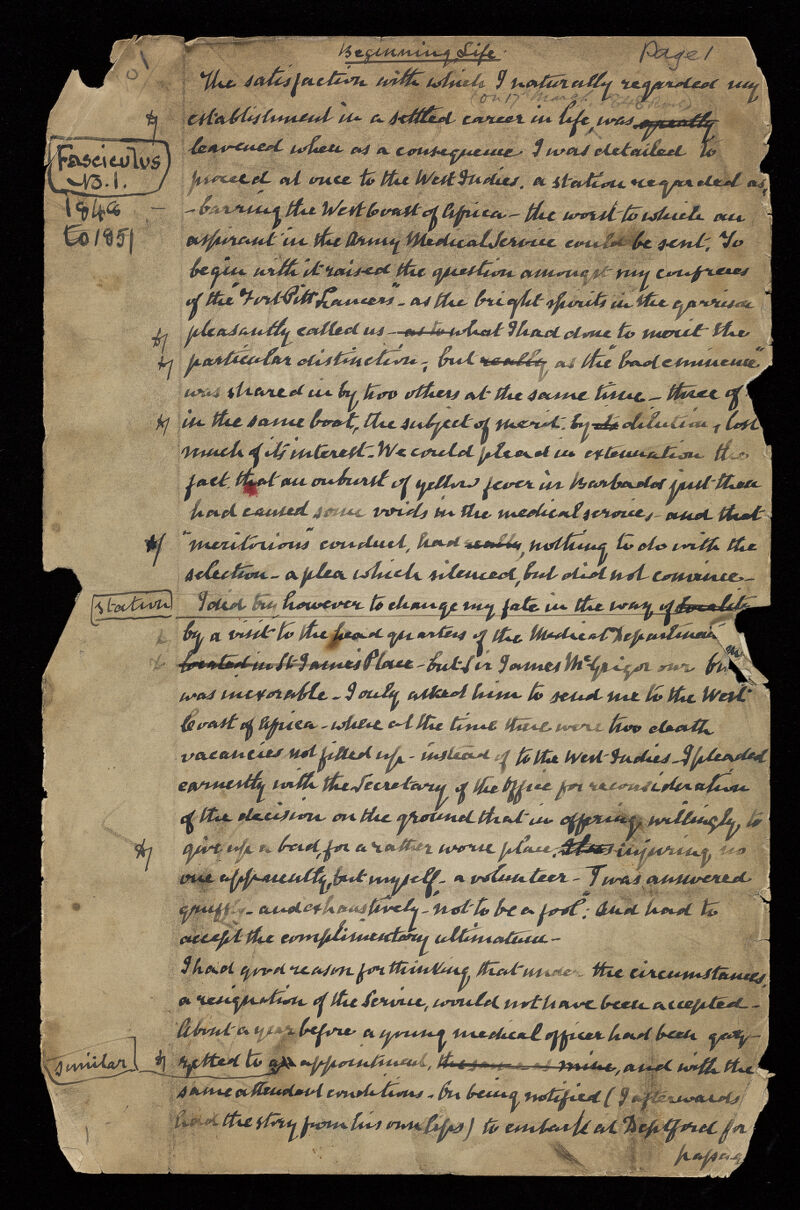 Beginning Life.
Page 1
01
The satisfaction with which I naturally regarded my
(on 17th March
establishment in a settled career in life, was greatly
Fasciculus
No. 1.
1848 –
to 1851
leavened when as a consequence I was detailed to
proceed at once to the West Indies, a station regarded as,
- barring the West Coast of Africa – the worst to which an
aspirant in the Army Medical Service could be sent. To
begin with it raised the question amongst my confreres
of the "Fort Pitt Lancers" – as the bright spirits in the garrison
pleasantly called us – as to what I had done to merit the
particular distinction, but really as the "bad eminence"
was shared in by two others at the same time – three of
in the same boat, the subject of merit, by dilution, lost
much of its interest – We could plead in extenuation the
fact that an outburst of yellow fever in Barbados just then
had caused some voids in the medical services – and that
"meritorious" conduct, had really, nothing to do with the
selection – a plea which silenced, but did not convince –
station
I did try however to change my fate in the way of locality
by a visit to the head quarters of the Medical Department
located in St James Place – but Sir James McGrigor our
was inexorable – I only asked him to send me to the West
Coast of Africa – where at the time there were two death
vacancies not filled up – instead of to the West Indies – I pleaded
earnestly with the Secretary of the Office for reconsideration
of the decision on the ground that in offering, willingly, to
give up a bad, for a rather worse place, injuring no
one apparently, but myself – a volunteer – I was answered
gruffly – and exhaustively – "not to be a fool"; and had to
accept the complimentary ultimatum –
I had good reason for thinking that under the circumstances,
a resignation of the Service, would not have been accepted –
About a year before a young medical officer had been gaz-
similar
zetted to an appointment, the same as mine, and with the
same attendant conditions – On being notified (I afterwards
had the story from his own lips) to embark at Deptford for
passag